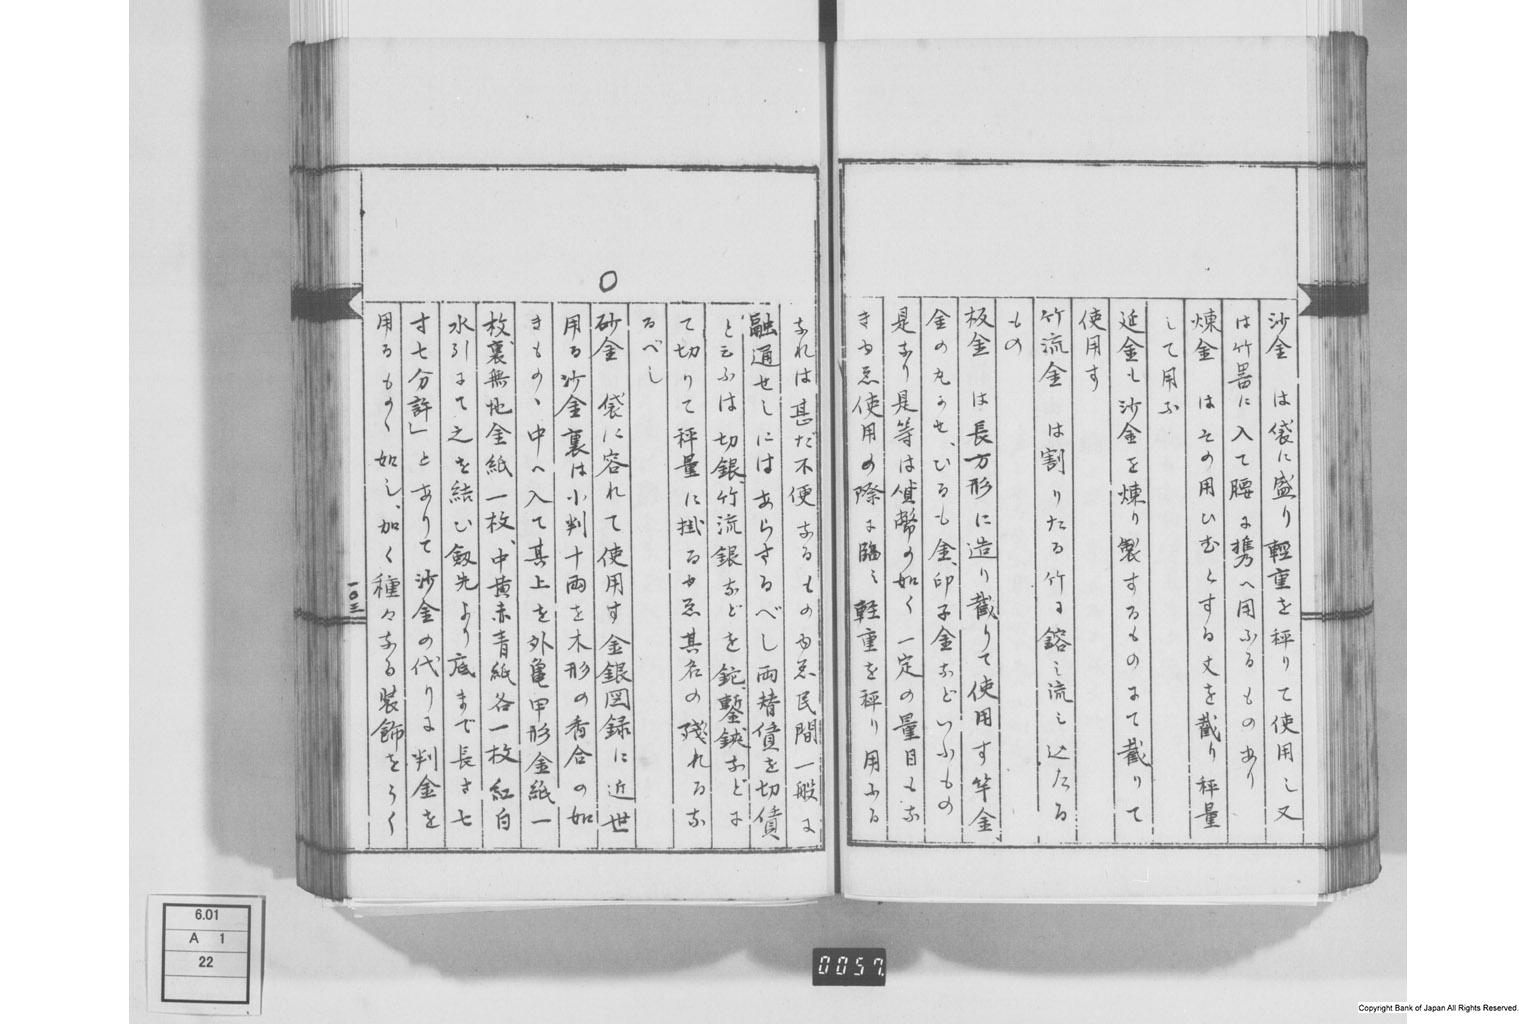 沙金　は袋に盛り輕重を秤りて使用し又
は竹器に入て腰に携へ用ふるものあり
煉金　はその用ひむとする丈を截り秤量
して用ふ
延金も沙金を煉り製するものにて截りて
使用す
竹流金　は割りたる竹に鎔し流し込たる
もの
板金　は長方形に造り截りて使用す竿金
金の丸
ひるも金、印子金などいふもの
是なり是等は貨幣の如く一定の量目もな
きゆゑ使用の際に臨み輕重を秤り用ふる
なれは甚だ不便なるものゆゑ民間一般に
融通せしにはあらさるべし両替債を切債
と云ふは切銀、竹流銀などを鉈、鏨、鋏などに
て切りて秤量に掛るゆゑ其名の殘れるな
るべし
○
砂金　袋に容れて使用す金銀図録に近世
用る沙金裏は小判十両を木形の香合の如
きもの、中へ入て其上を外亀甲形金紙一
枚、裏無地金紙一枚、中黄赤青紙各一枚紅白
水引にて之を結ひ劔先より底まで長さ七
寸七分許」とありて沙金の代りに判金を
用るもの 如し、加く種々なる装飾を
一〇三
6.01
A 1
22
0057.
Copyright Bank of Japan All Rights Reserved.